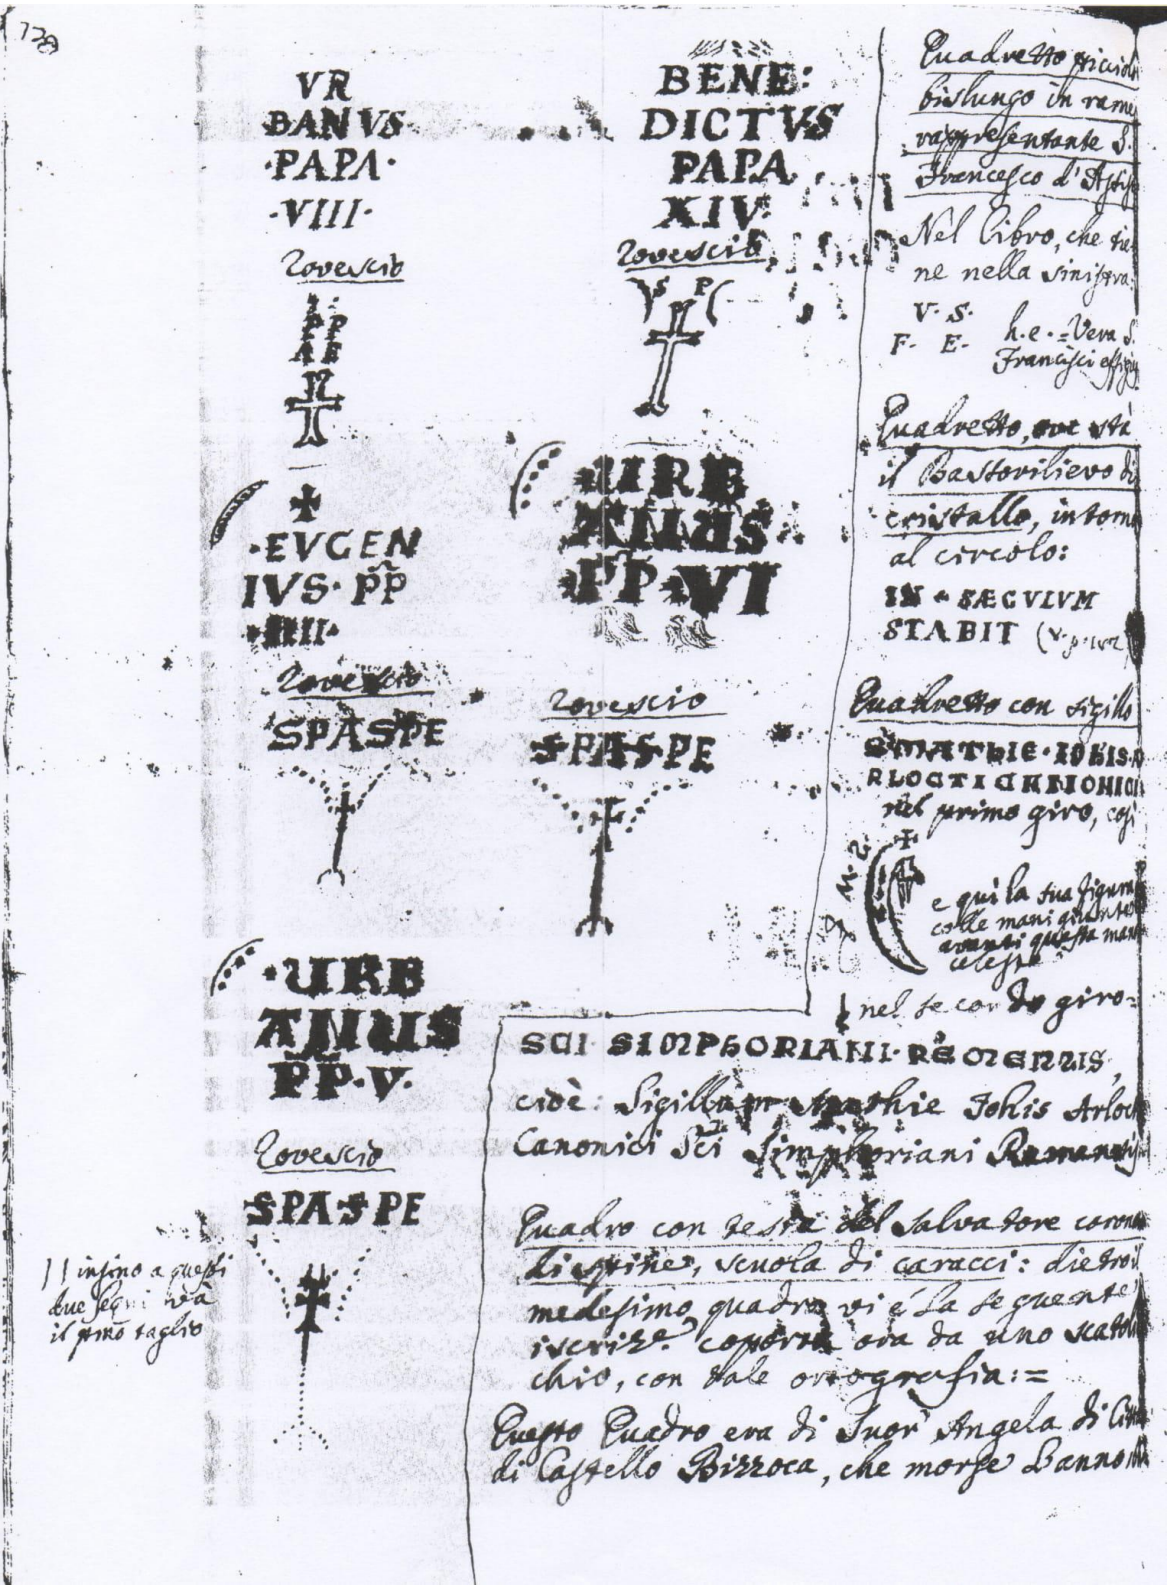 VR
BANVS
·PAPA·
·VIII·
Rovescio
PP
N
✠
·EVGEN
IVS· PP
·IIII·
Rovescio
SPASPE
·URB
ANUS
PP·V·
Rovescio
SPASPE
11 insino a questi
due segni va
il primo taglio
BENE:
DICTVS
PAPA
XIV·
Rovescio
S P
URB
ANUS
PP·VI
Rovescio
SPASPE
Quadretto
bislungo in rame
rappresentante S.
Francesco d'Assis
Nel libro, che tie
ne nella sinistra:
V· S·
F· E·
h.e. = Vera S.
Francisci effigi
Quadretto, ove stà
il Bassorilievo di
cristallo, intorno
al circolo:
IN · SÆCVLVM
STABIT (v. p.
Quadretto con sigillo
S MATHIE · IOHIS·
RLOCTI CANONICI
nel primo giro, così
e qui la sua figura
colle mani giunte
avanti questa man
celeste
nel secondo giro=
SCI· SIMPHORIANI·
cioè: Sigillum Mathie Johis Arloc
Canonici Sci Simphoriani
Quadro con testa del Salvatore coron
di spine, scuola di caracci: dietro il
medesimo quadro vi è la seguente
iscriz.e coperta ora da uno scatol
chio, con tale ortografia:=
Questo Quadro era di Suor Angela di Citt
di Castello Bizzoca, che morse l'anno